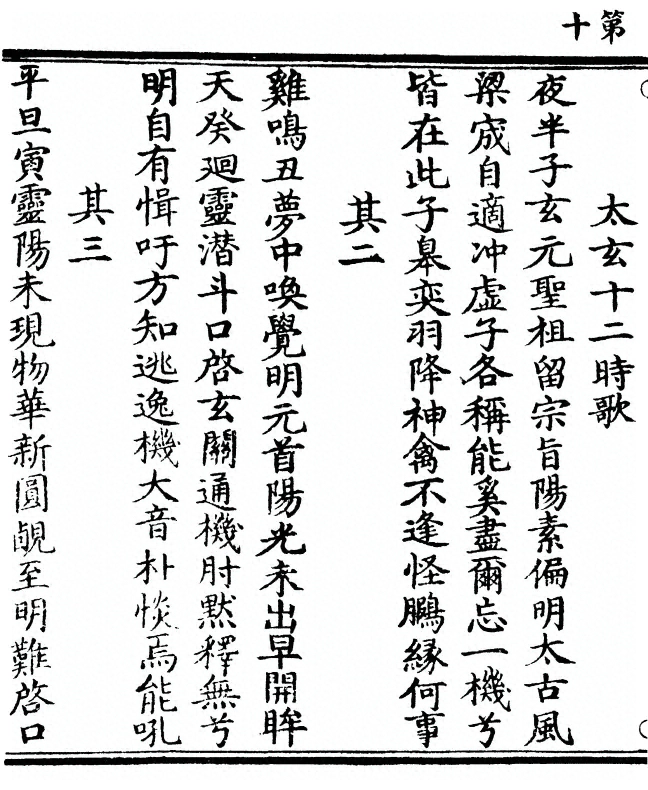 第十
太玄十二時歌
夜半子玄元聖祖留宗旨陽素偏明太古風
梁宬自適冲虛子各稱能奚盡爾忘一機兮
皆在此子皋奕羽降神禽不逢怪鵬緣何事
其二
雞鳴丑夢中喚覺明元首陽光未出早開眸
天癸廻靈潜斗口啓玄關通機肘默釋無兮
明自有愲吁方知逃逸機大音朴惔焉能吼
其三
平旦寅靈陽未現物華新圓靦至明難啓口